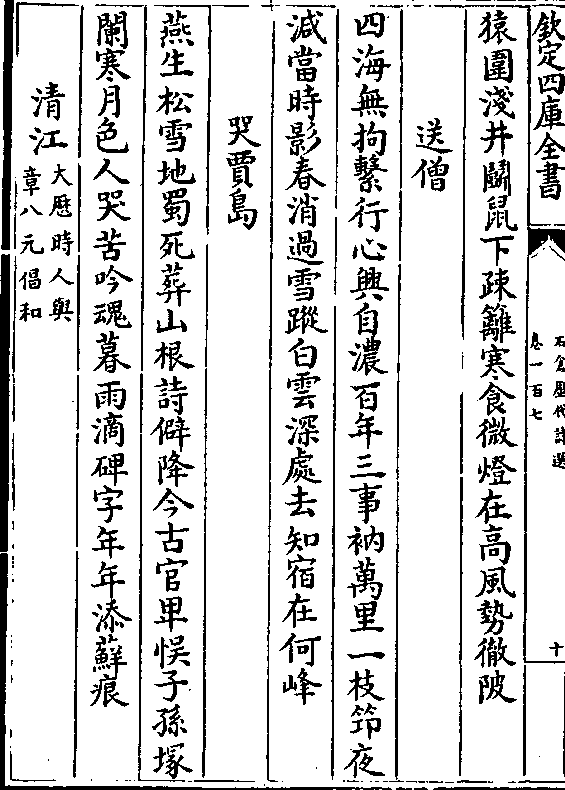 欽定四庫全書
石倉歷代詩選
卷一百七
十
猿圍淺井鬭鼠下疎籬寒食微燈在高風勢徹陂
送僧
四海無拘繫行心興自濃百年三事衲萬里一枝筇夜
減當時影春消過雪蹤白雲深處去知宿在何峰
哭賈島
燕生松雪地蜀死葬山根詩僻降今古官卑悞子孫塚
闌寒月色人哭苦吟魂暮雨滴碑字年年添蘚痕
清江
大厯時人與
章八元倡和